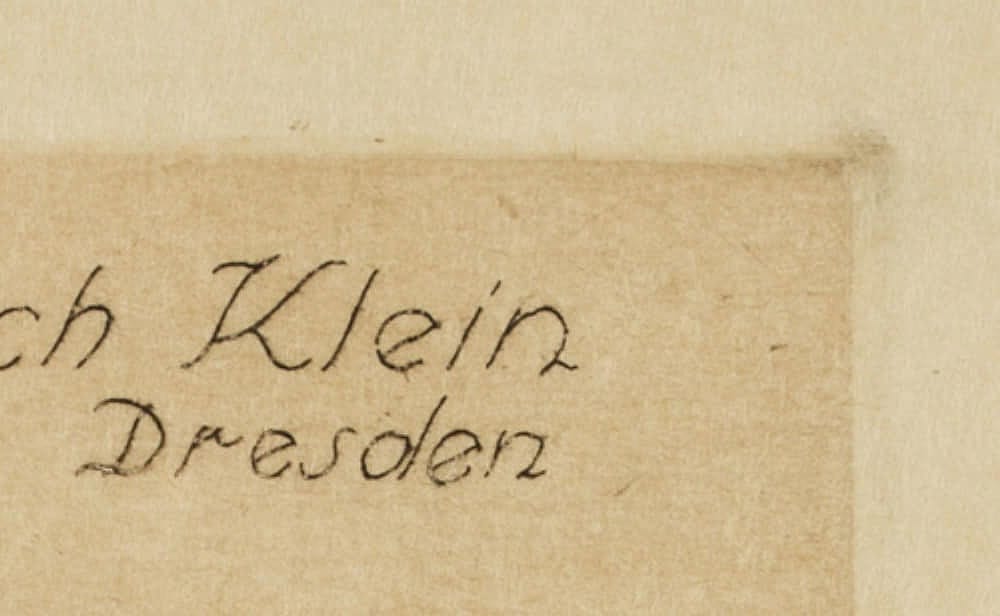 ch Klein
Dresden